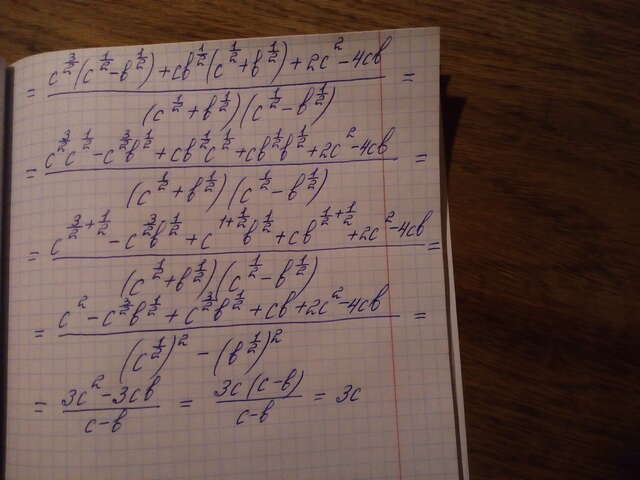 = (c^{3/2}(c^{1/2} - в^{1/2}) + cв^{1/2}(c^{1/2} + в^{1/2}) + 2c^2 - 4cв) / ((c^{1/2} + в^{1/2})(c^{1/2} - в^{1/2})) =
= (c^{3/2}c^{1/2} - c^{3/2}в^{1/2} + cв^{1/2}c^{1/2} + cв^{1/2}в^{1/2} + 2c^2 - 4cв) / ((c^{1/2} + в^{1/2})(c^{1/2} - в^{1/2})) =
= (c^{3/2+1/2} - c^{3/2}в^{1/2} + c^{1+1/2}в^{1/2} + cв^{1/2+1/2} + 2c^2 - 4cв) / ((c^{1/2} + в^{1/2})(c^{1/2} - в^{1/2})) =
= (c^2 - c^{3/2}в^{1/2} + c^{3/2}в^{1/2} + cв + 2c^2 - 4cв) / ((c^{1/2})^2 - (в^{1/2})^2) =
= (3c^2 - 3cв) / (c - в) = (3c(c - в)) / (c - в) = 3c